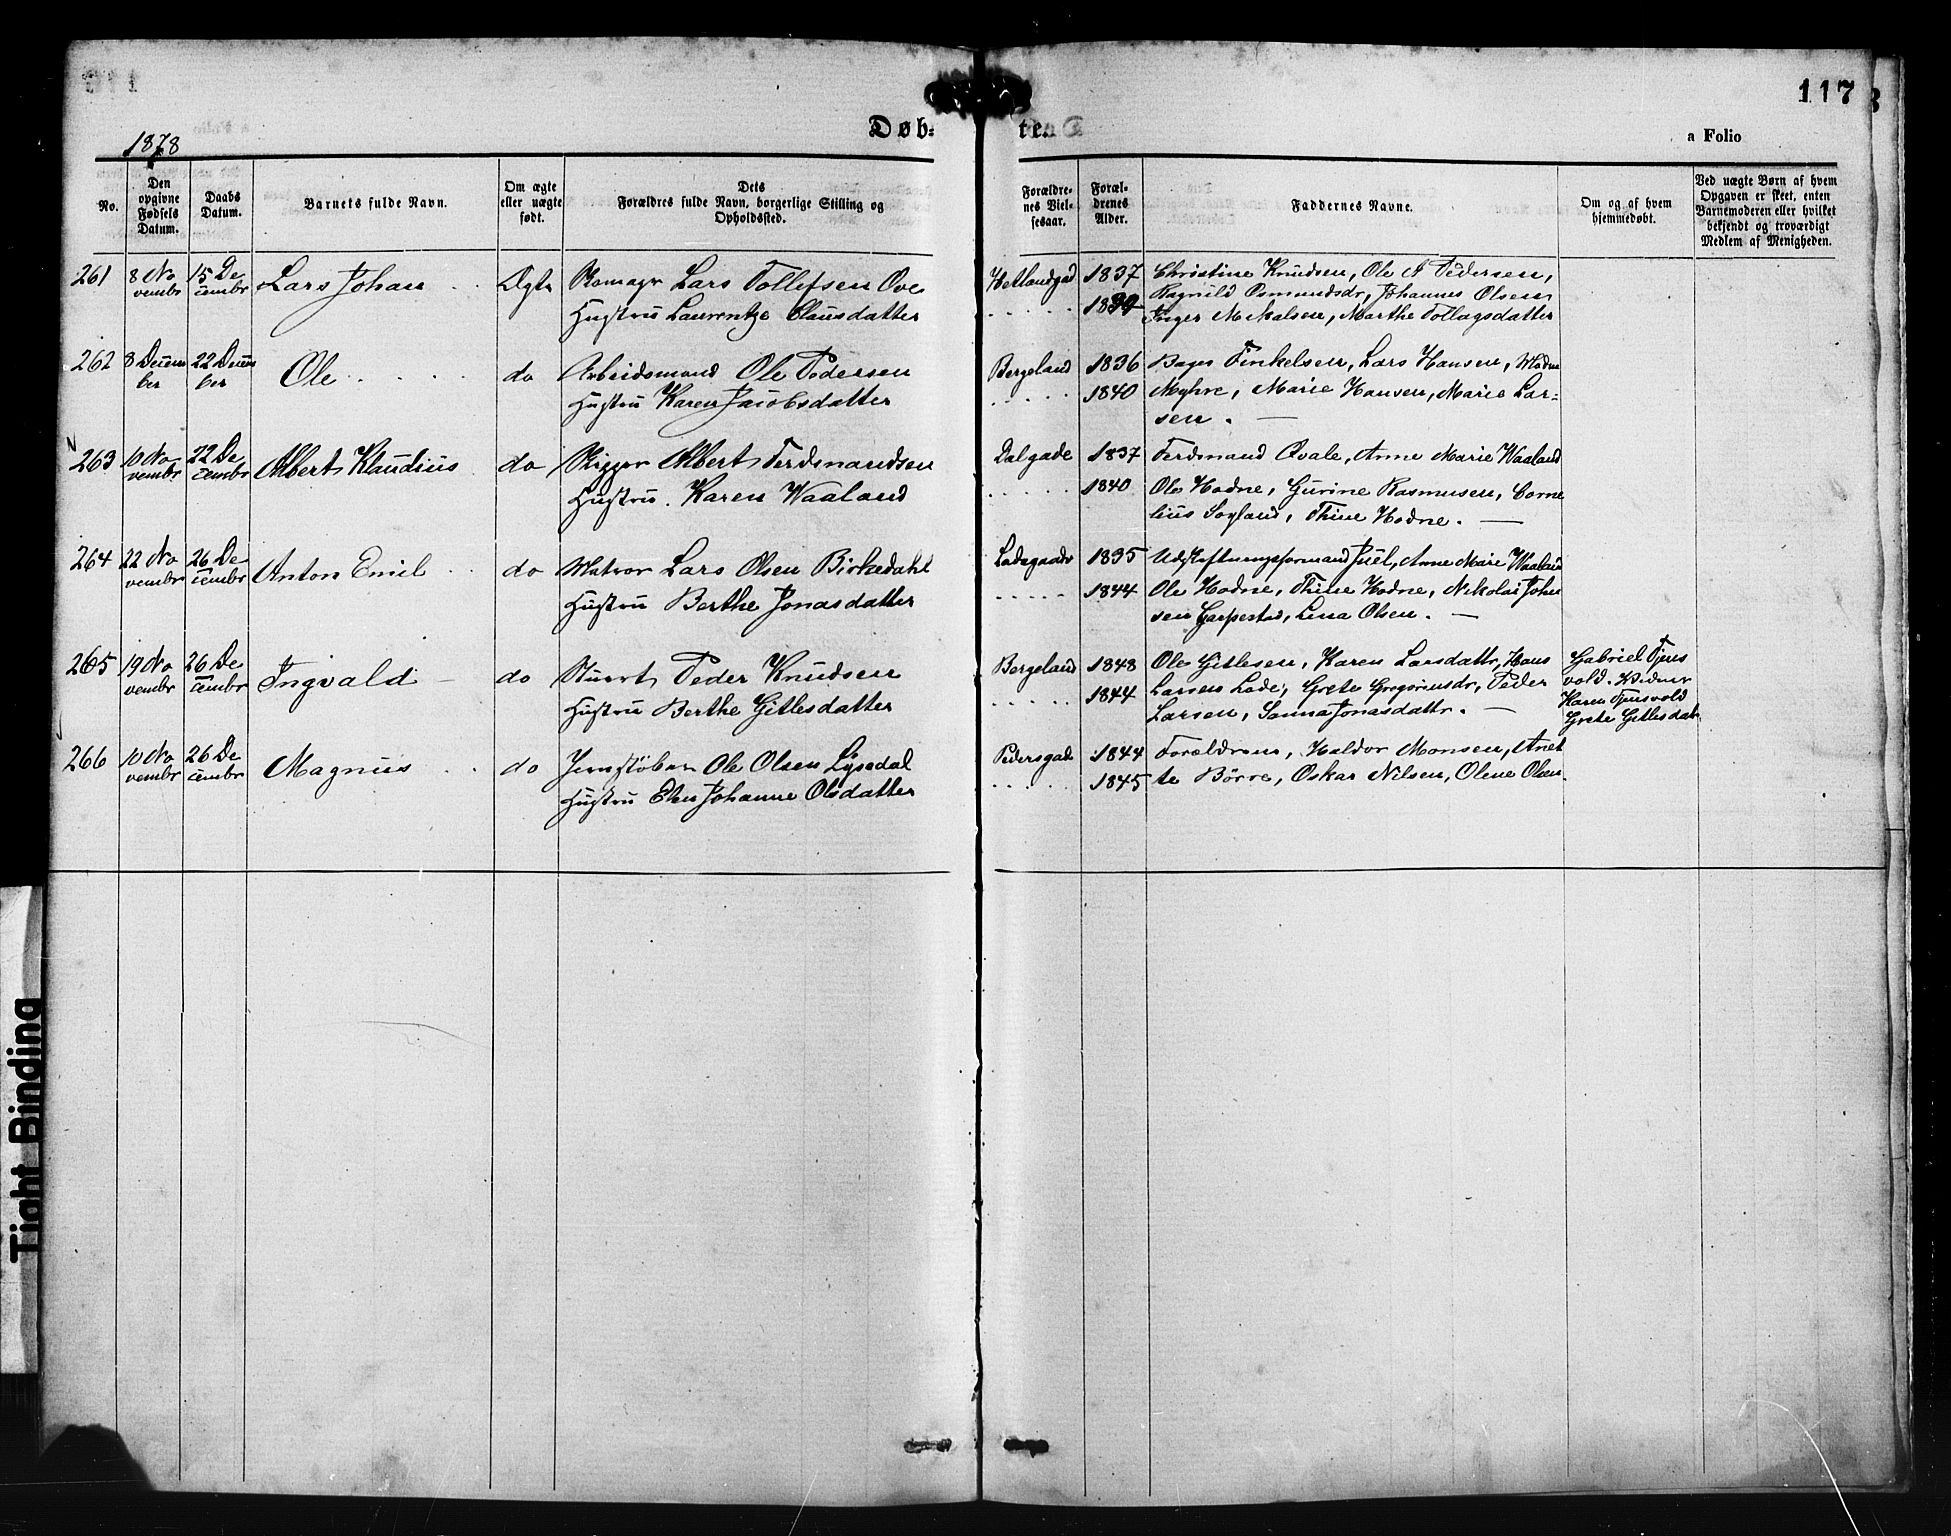 117
Døbte
a Folio
1878
No.
Den opgivne Fødsels Datum.
Daabs Datum.
Barnets fulde Navn.
Om ægte eller uægte født.
Dets Forældres fulde Navn, borgerlige Stilling og Opholdssted.
Forældrenes Vielsesaar.
Forældrenes Alder.
Faddernes Navne.
Om og af hvem hjemmedøbt.
Ved uægte Børn af hvem Opgaven er skeet, enten Barnemoderen eller hvilket bekjendt og troværdigt Medlem af Menigheden.
261 8 November 15 Decembr Lars Johan Ægte Lars Tollefsen Ove Hetlandgad 1837 Christine Knudsen, Ole Pedersen,
Hustru Laurentze Clausdatter Ragnild Osmundsdr, Johannes Olsen,
Inger Mikalsen, Marthe Tollagsdatter
262 8 December 22 December Ole do Arbeidsmand Ole Pedersen Bergeland 1836 Bager Tinkelsen, Lars Hansen, Madm
Hustru Karen Jacobsdatter 1840 Myhre, Marie Hansen, Marie Lar=
sen. —
263 10 Novembr 22 Decembr Albert Klaudius do Rigger Albert Ferdinandsen Dalgade 1837 Ferdinand Qvale, Anne Marie Waaland
Hustru. Karen Waaland 1840 Ole Hodne, Gurine Rasmusen, Corne
lius Soyland, Thine Hodne. —
264 22 Novembr 26 Decembr Anton Emil do Matros Lars Olsen Birkedahl Ladegaadv 1835 Udskiftningsformand Juel, Anne Marie Waaland
Hustru Berthe Jonasdatter 1844 Ole Hodne, Thine Hodne, Nikolai Johan
sen Garpestad, Lina Olsen. —
265 19 Novembr 26 Decembr Ingvald do Stuert Peder Knudsen Bergeland 1848 Ole Gitlesen, Karen Larsdattr, Hans Gabriel Tjens
Hustru Berthe Gitlesdatter 1844 Larsen Lade, Grete Gregoriusdr, Peder vold. Vidner
Larsen, Sanna Jonasdattr. — Karen Tjensvold
Grete Gitlesdatr
266 10 Novembr 26 Decembr Magnus do Jernstøber Ole Olsen Lysedal Pedersgade 1844 Forældrene, Haldor Monsen, Anet
Hustru Elen Johanne Olsdatter 1845 te Börre, Oskar Nilsen, Olene Olsen.
Tight Binding